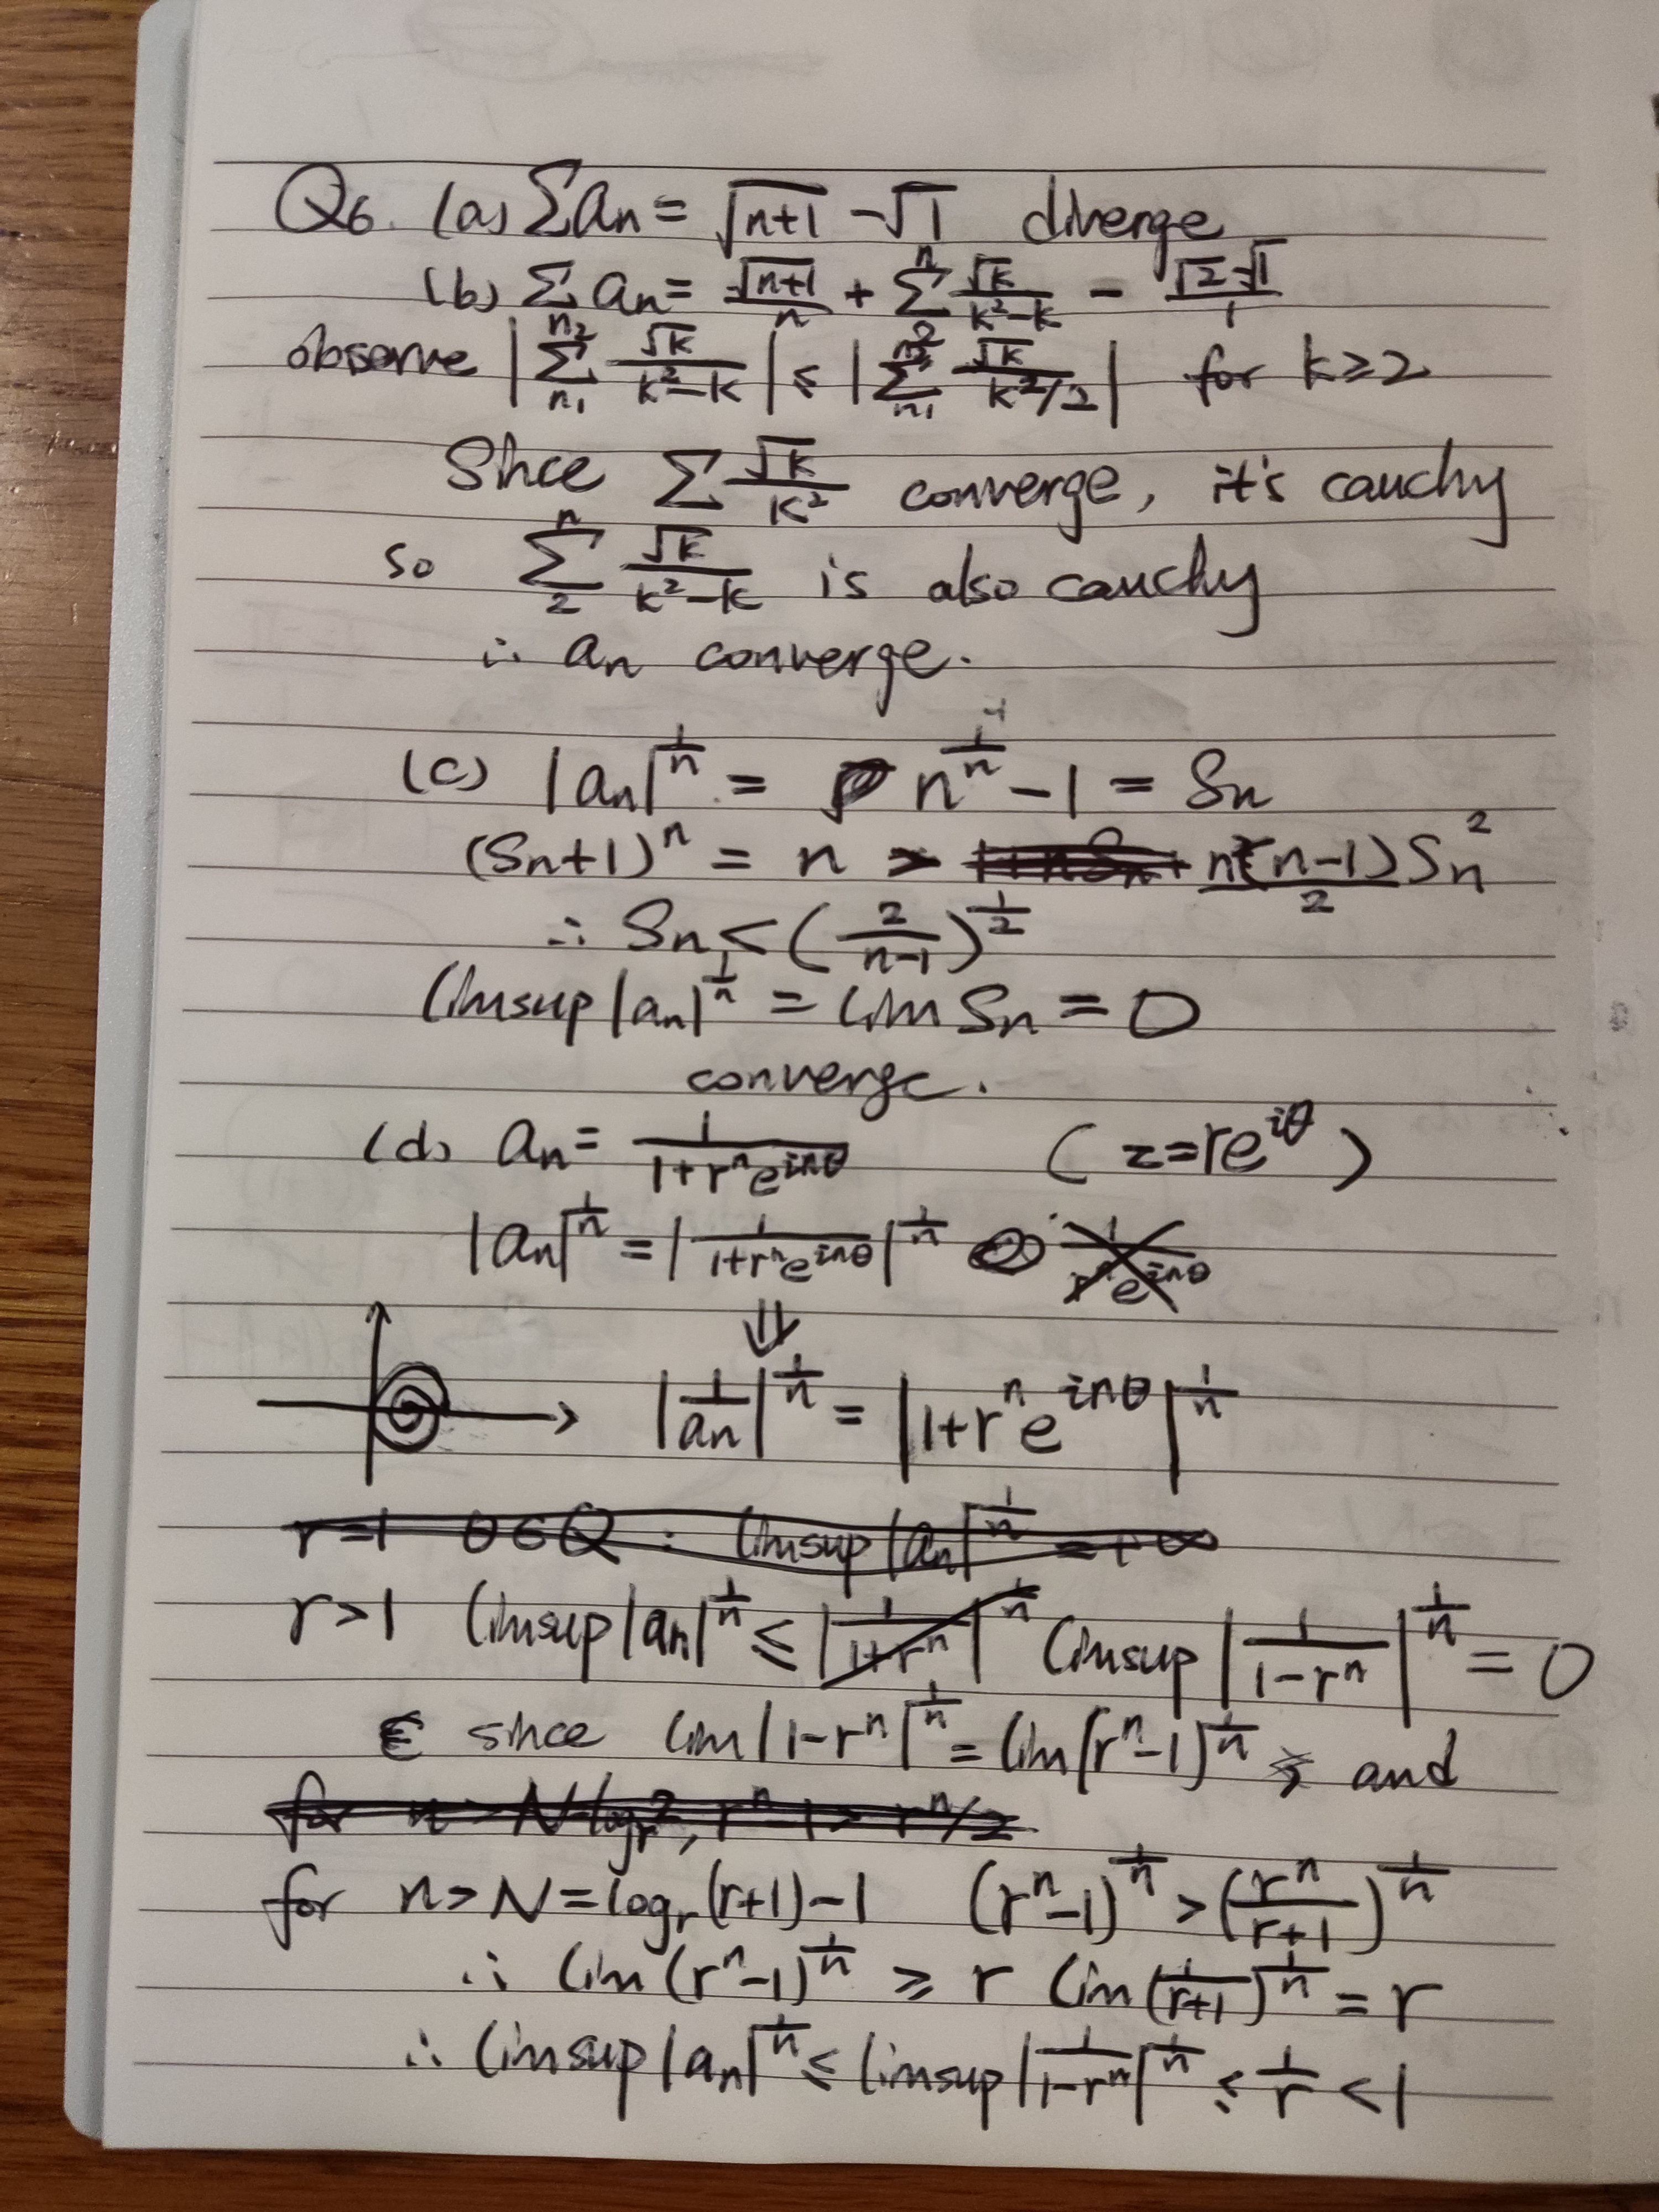 Q6. (a) Σan = √(n+1) - √1 diverge
(b) Σ an = √(n+1)/n + Σ_2^n √k/(k²-k) - (√2-√1)/1
observe |Σ_{n1}^{n2} √k/(k²-k)| ≤ |Σ_{n1}^{n2} √k/(k²/2)| for k≥2
Since Σ √k/k² converge, it's cauchy
so Σ_2^n √k/(k²-k) is also cauchy
∴ an converge.
(c) |an|^(1/n) = n^(1/n) - 1 = Sn
(Sn+1)^n = n > n(n-1)/2 Sn²
∴ Sn < (2/(n-1))^(1/2)
limsup |an|^(1/n) = lim Sn = 0
converge.
(d) an = 1/(1+r^n e^(inθ)) (z=re^(iθ))
|an|^(1/n) = |1/(1+r^n e^(inθ))|^(1/n)
⇓
|1/an|^(1/n) = |1+r^n e^(inθ)|^(1/n)
r=1 θ∈Q : limsup |an|^(1/n) = +∞
r>1 limsup |an|^(1/n) ≤ |1/(1+r^n)|^(1/n) limsup |1/(1-r^n)|^(1/n) = 0
since lim |1-r^n|^(1/n) = lim (r^n-1)^(1/n) and
for n > N log_r 2, r^n-1 > r^n/2
for n > N = log_r(r+1)-1 (r^n-1)^(1/n) > (r^n/(r+1))^(1/n)
∴ lim (r^n-1)^(1/n) ≥ r lim (1/(r+1))^(1/n) = r
∴ limsup |an|^(1/n) ≤ limsup |1/(1-r^n)|^(1/n) ≤ 1/r < 1